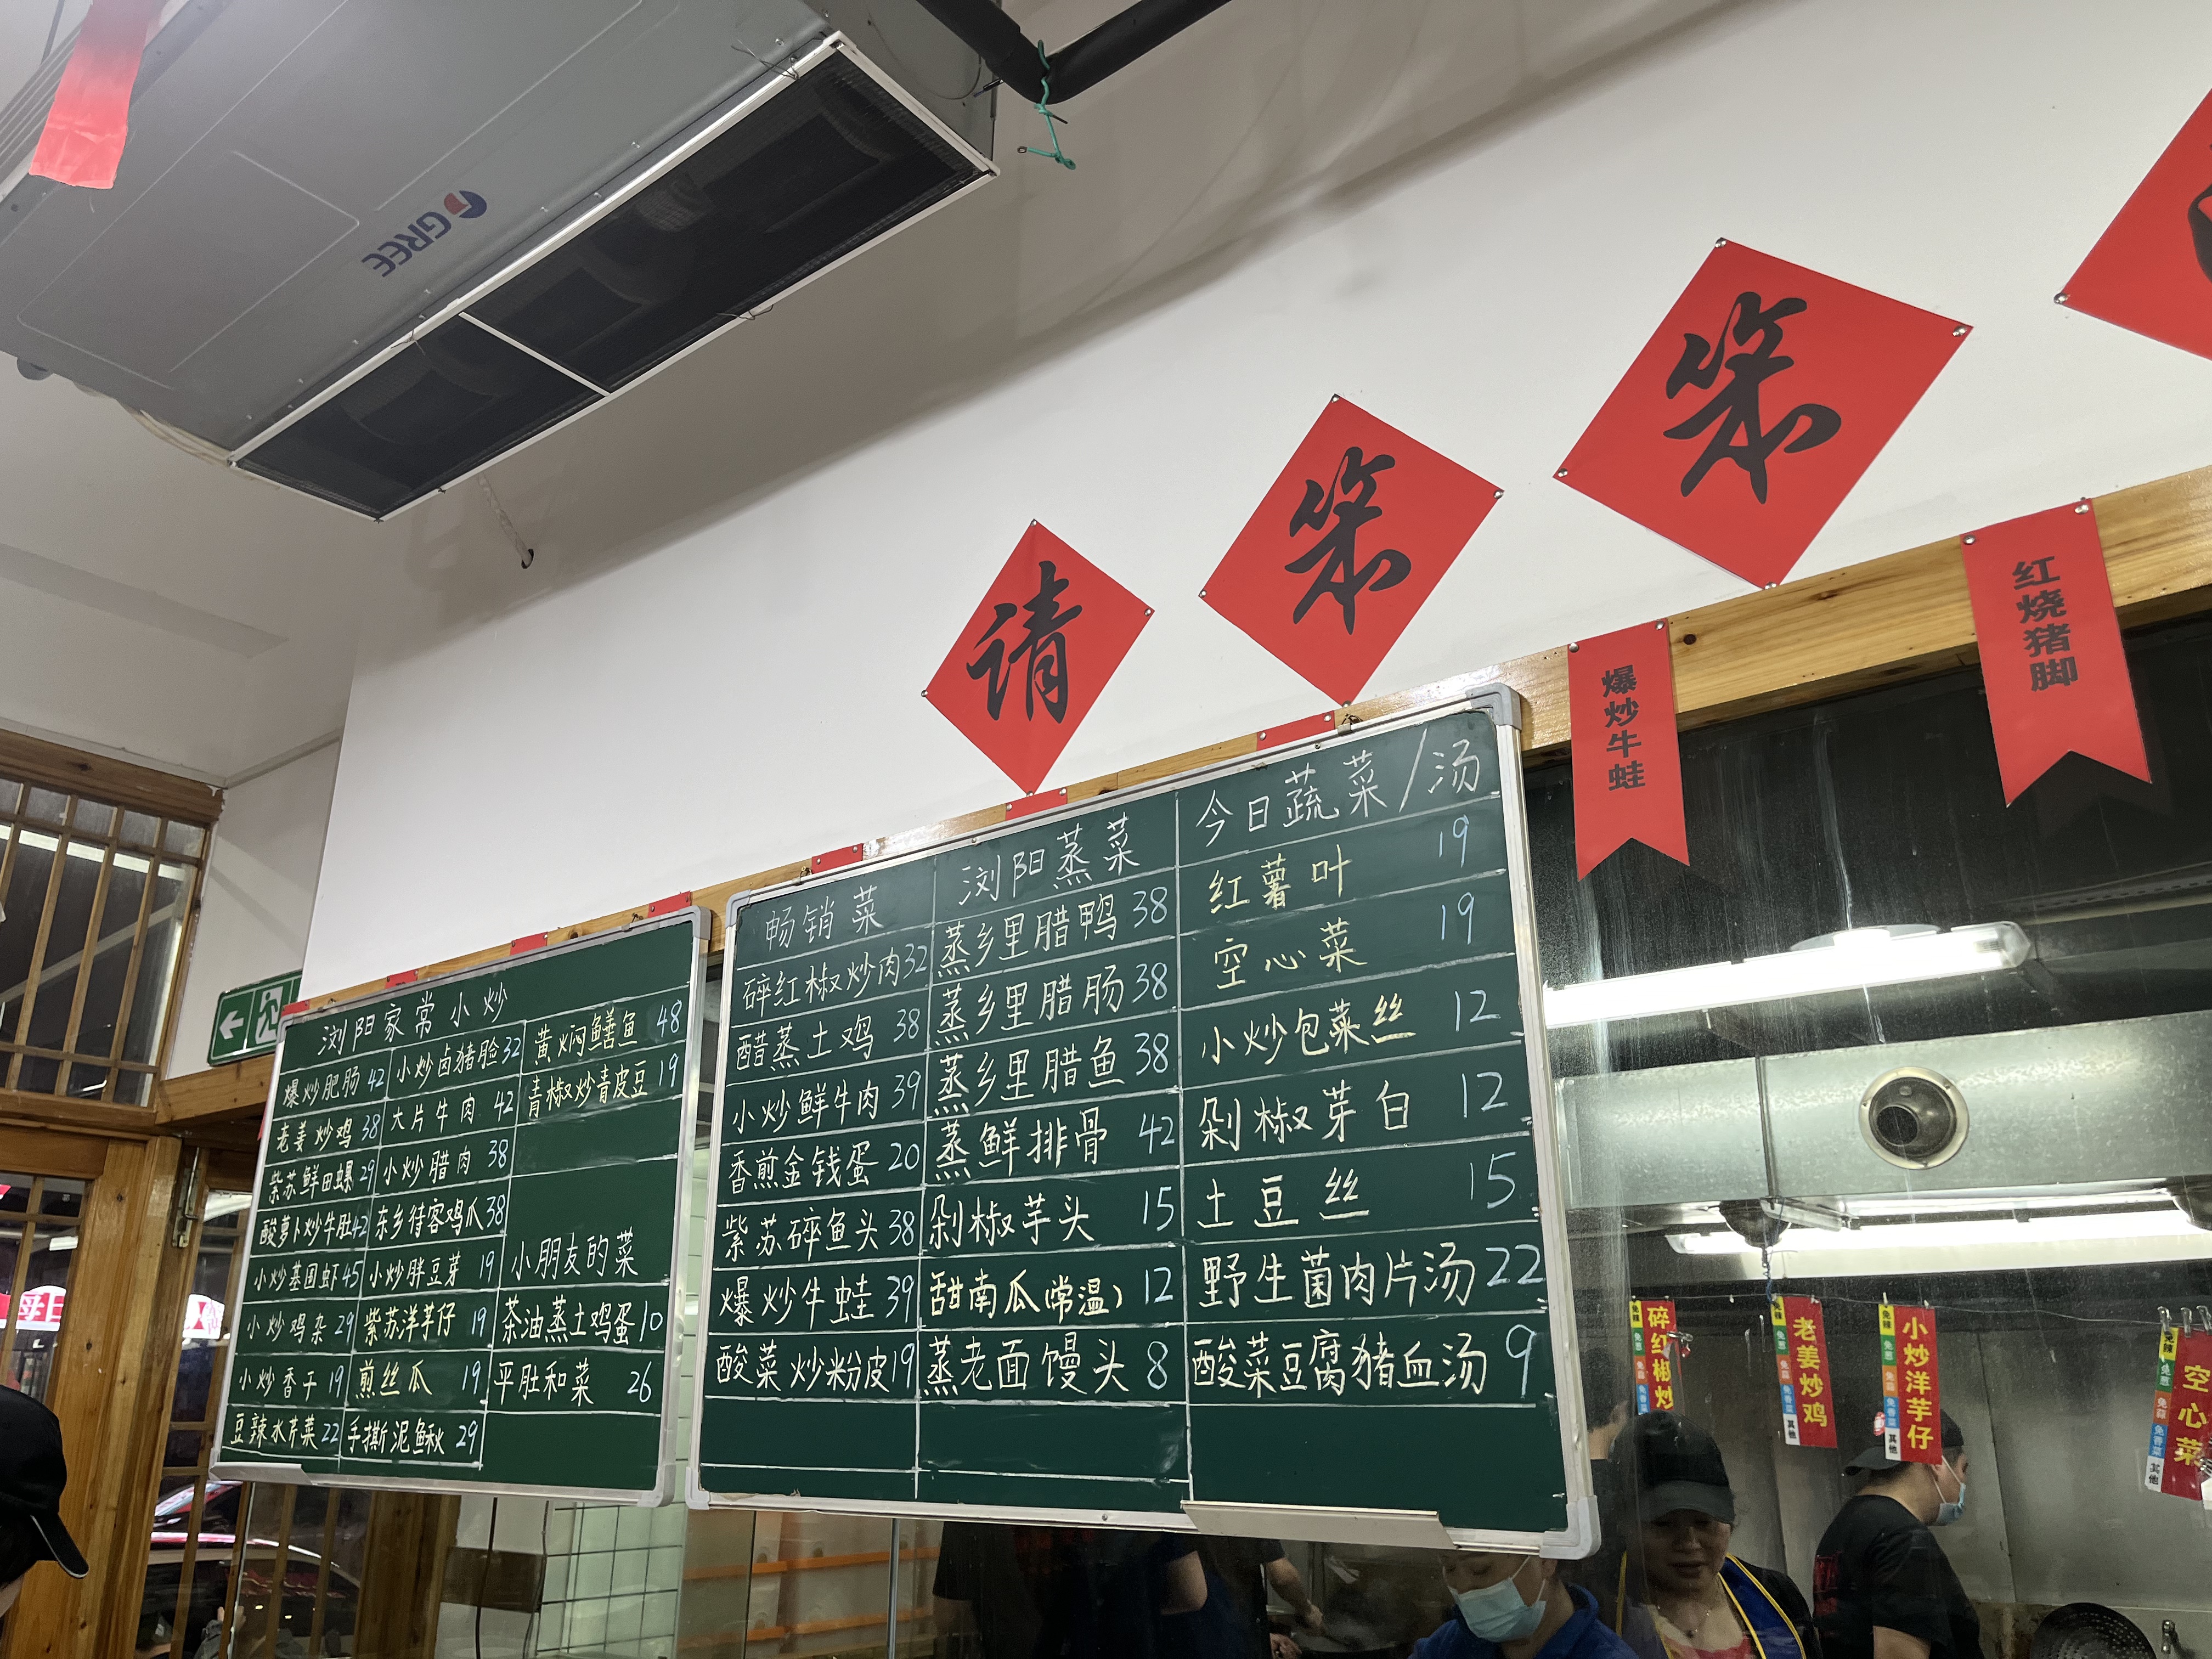 GREE
请
笨
笨
爆炒牛蛙
红烧猪脚
浏阳家常小炒
爆炒肥肠 42 小炒卤猪脸 32 黄焖鳝鱼 48
老姜炒鸡 38 大片牛肉 42 青椒炒青皮豆 19
紫苏鲜田螺 29 小炒腊肉 38
酸萝卜炒牛肚 42 东乡待客鸡爪 38
小炒基围虾 45 小炒胖豆芽 19 小朋友的菜
小炒鸡杂 29 紫苏洋芋仔 19 茶油蒸土鸡蛋 10
小炒香干 19 煎丝瓜 19 平肚和菜 26
豆辣水芹菜 22 手撕泥鳅 29
畅销菜 浏阳蒸菜 今日蔬菜/汤
碎红椒炒肉 32 蒸乡里腊鸭 38 红薯叶 19
醋蒸土鸡 38 蒸乡里腊肠 38 空心菜 19
小炒鲜牛肉 39 蒸乡里腊鱼 38 小炒包菜丝 12
香煎金钱蛋 20 蒸鲜排骨 42 剁椒芽白 12
紫苏碎鱼头 38 剁椒芋头 15 土豆丝 15
爆炒牛蛙 39 甜南瓜(常温) 12 野生菌肉片汤 22
酸菜炒粉皮 19 蒸老面馒头 8 酸菜豆腐猪血汤 9
碎红椒炒
老姜炒鸡
小炒洋芋仔
空心菜
免辣 免葱 免蒜 免香菜 其他